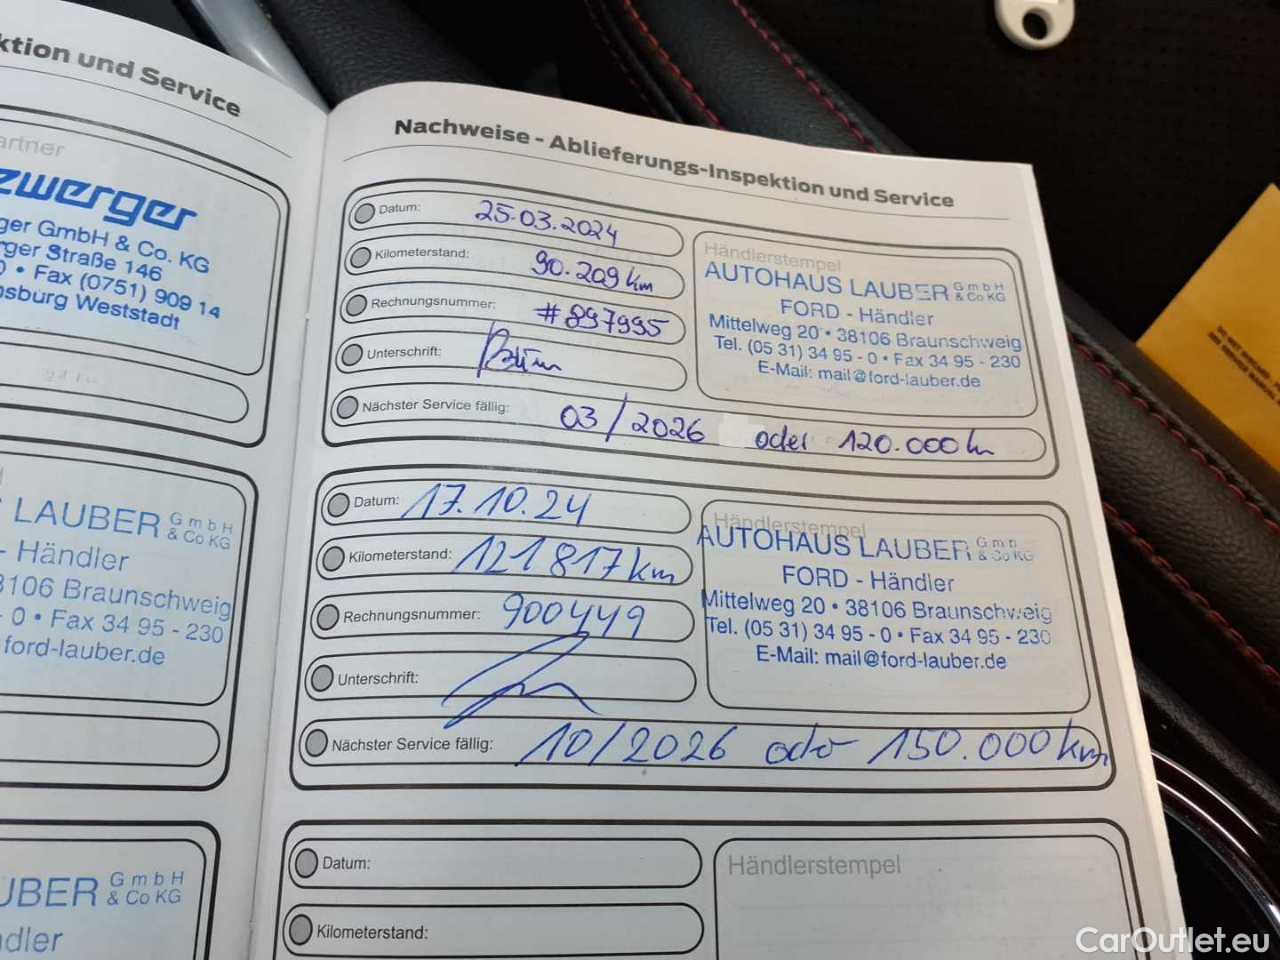 ktion und Service
artner
zwerger
ger GmbH & Co. KG
rger Straße 146
0 • Fax (0751) 909 14
nsburg Weststadt
LAUBER GmbH & Co KG
- Händler
8106 Braunschweig
- 0 • Fax 34 95 - 230
ford-lauber.de
UBER GmbH & Co KG
dler
Nachweise - Ablieferungs-Inspektion und Service
Datum: 25.03.2024
Kilometerstand: 90.209 km
Rechnungsnummer: #897995
Unterschrift:
Nächster Service fällig: 03/2026 oder 120.000 km
Händlerstempel
AUTOHAUS LAUBER GmbH & Co KG
FORD - Händler
Mittelweg 20 • 38106 Braunschweig
Tel. (05 31) 34 95 - 0 • Fax 34 95 - 230
E-Mail: mail@ford-lauber.de
Datum: 17.10.24
Kilometerstand: 121817 km
Rechnungsnummer: 900449
Unterschrift:
Nächster Service fällig: 10/2026 oder 150.000 km
Händlerstempel
AUTOHAUS LAUBER GmbH & Co KG
FORD - Händler
Mittelweg 20 • 38106 Braunschweig
Tel. (05 31) 34 95 - 0 • Fax 34 95 - 230
E-Mail: mail@ford-lauber.de
Datum:
Kilometerstand:
Händlerstempel
CarOutlet.eu